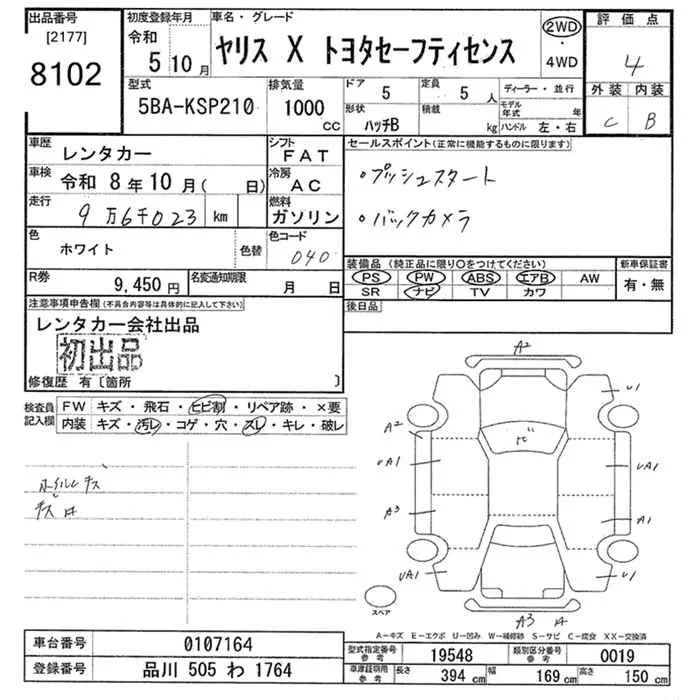 出品番号
[2177]
8102
初度登録年月
令和
5 10 月
車名・グレード
ヤリス X トヨタセーフティセンス
2WD
・
4WD
評価点
4
外装 内装
C B
型式
5BA-KSP210
排気量
1000
cc
ドア
5
定員
5 人
形状
ハッチB
積載
kg
ディーラー・並行
モデル年式 年
ハンドル 左・右
車歴
レンタカー
シフト
FAT
車検 令和 8年10月( 日)
冷房
AC
走行
9万6千023 km
燃料
ガソリン
色
ホワイト
色替
色コード
040
R券
9,450 円
名変通知期限
月 日
セールスポイント(正常に機能するものに限ります)
・プッシュスタート
・バックカメラ
装備品 (純正品に限り○をつけてください)
PS PW ABS エアB AW
SR ナビ TV カワ
新車保証書
有・無
後日品
注意事項申告欄(不具合内容等は具体的に記入して下さい)
レンタカー会社出品
初出品
修復歴 有〔箇所 〕
検査員
記入欄
FW キズ・飛石・ヒビ割・リペア跡・×要
内装 キズ・汚レ・コゲ・穴・スレ・キレ・破レ
ホイルキズ
キズ 井
A2
U1
A2
UA1
UA1
A3
A1
UA1
U1
スペア
A3 井
A-キズ E-エクボ U-凹み W-補修跡 S-サビ C-腐食 XX-交換済
車台番号
0107164
登録番号
品川 505 わ 1764
型式指定番号
参考
19548
類別区分番号
参考
0019
車庫証明用
参考
長さ
394 cm
幅
169 cm
高さ
150 cm